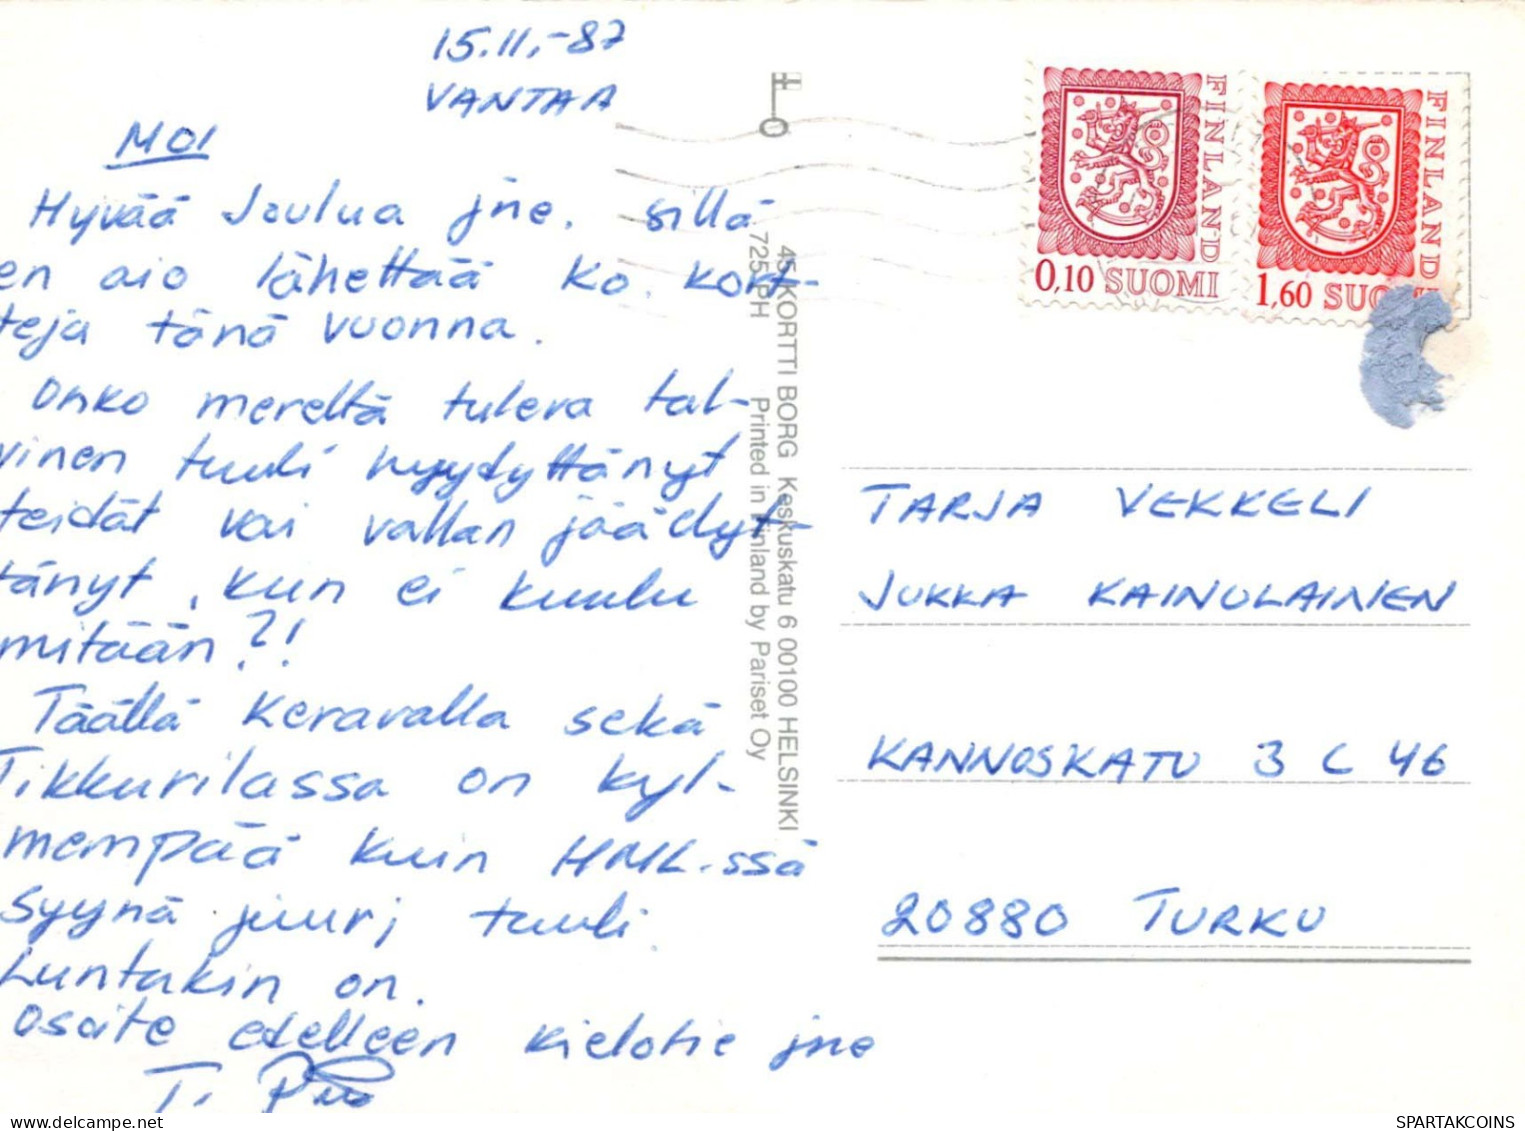 15.11.-87
VANTAA
MOI
Hyvää Joulua jne. sillä
en aio lähettää ko. kort-
teja tänä vuonna.
Onko mereltä tuleva tal-
vinen tuuli hyydyttänyt
teidät vai vallan jäädyt-
tänyt, kun ei kuulu
mitään?!
Täällä Keravalla sekä
Tikkurilassa on kyl-
mempää kuin HML-ssä
Syynä juuri tuuli.
Luntakin on.
Osoite edelleen Kielotie jne
T.
45 KORTTI BORG Keskuskatu 6 00100 HELSINKI
725 PH Printed in Finland by Pariset Oy
FINLAND
0,10 SUOMI
FINLAND
1,60 SUOMI
TARJA VEKKELI
JUKKA KAINULAINEN
KANNOSKATU 3 C 46
20880 TURKU
SPARTAKCOINS